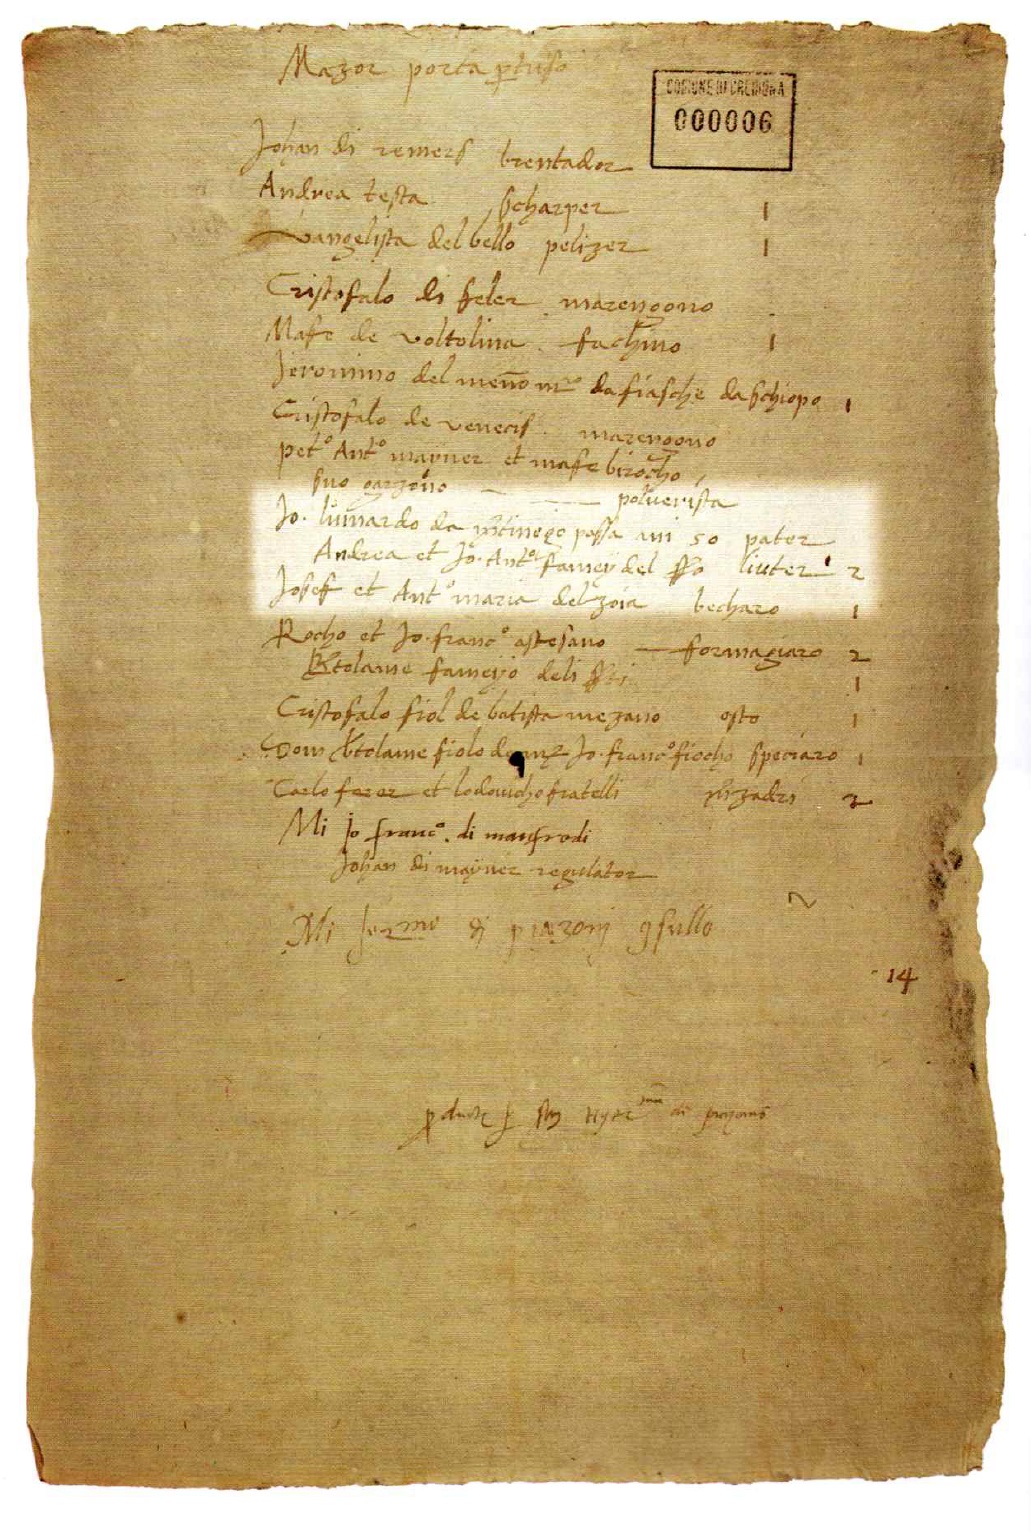 Mazor porta ptuso
COMUNE DI CREMONA
000006
Johan di remers brentador
Andrea testa scharper 1
Evangelista del bello pelizer 1
Cristofalo di seler marengono
Mafe de voltolina fachino 1
Jeronimo del meno mro da fiasche da schiopo 1
Cristofalo de venecis marengono
petº Antº mayner et mafe birocho
suo garzono polverista
Jo. lunardo da mtinego passa ani 50 pater
Andrea et Jo. Antº famey del sso liuter 2
Josef et Antº maria del zoia becharo 1
Rocho et Jo. francº astesano formagiaro 2
Btolame fameyo deli 1
Cristofalo fiol de batista mezano osto 1
Dom btolame fiolo de Jo. francº fiocho speciaro 1
Carlo ferer et lodovicho fratelli 2
Mi Jo francº. di manfrodi
Johan di mayner regulator
Mi di piazonj gsullo
14